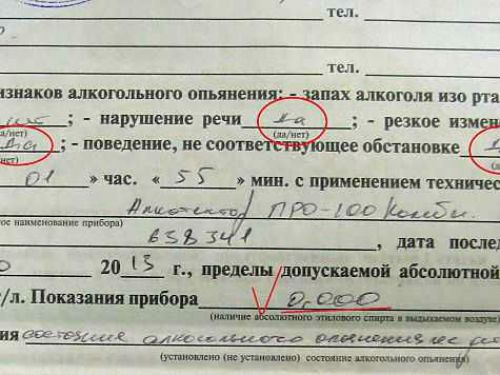 тел.
тел.
изнаков алкогольного опьянения: - запах алкоголя изо рта
; - нарушение речи да ; - резкое измене
(да/нет) (да/нет)
да ; - поведение, не соответствующее обстановке
01 » час. « 55 » мин. с применением техничес
Алкотектор ПРО-100 Комби.
ное наименование прибора)
638341 , дата послед
2013 г., пределы допускаемой абсолютной
г/л. Показания прибора 0,000
(наличие абсолютного этилового спирта в выдыхаемом воздухе)
ния состояния алкогольного опьянения не
(установлено (не установлено) состояние алкогольного опьянения)